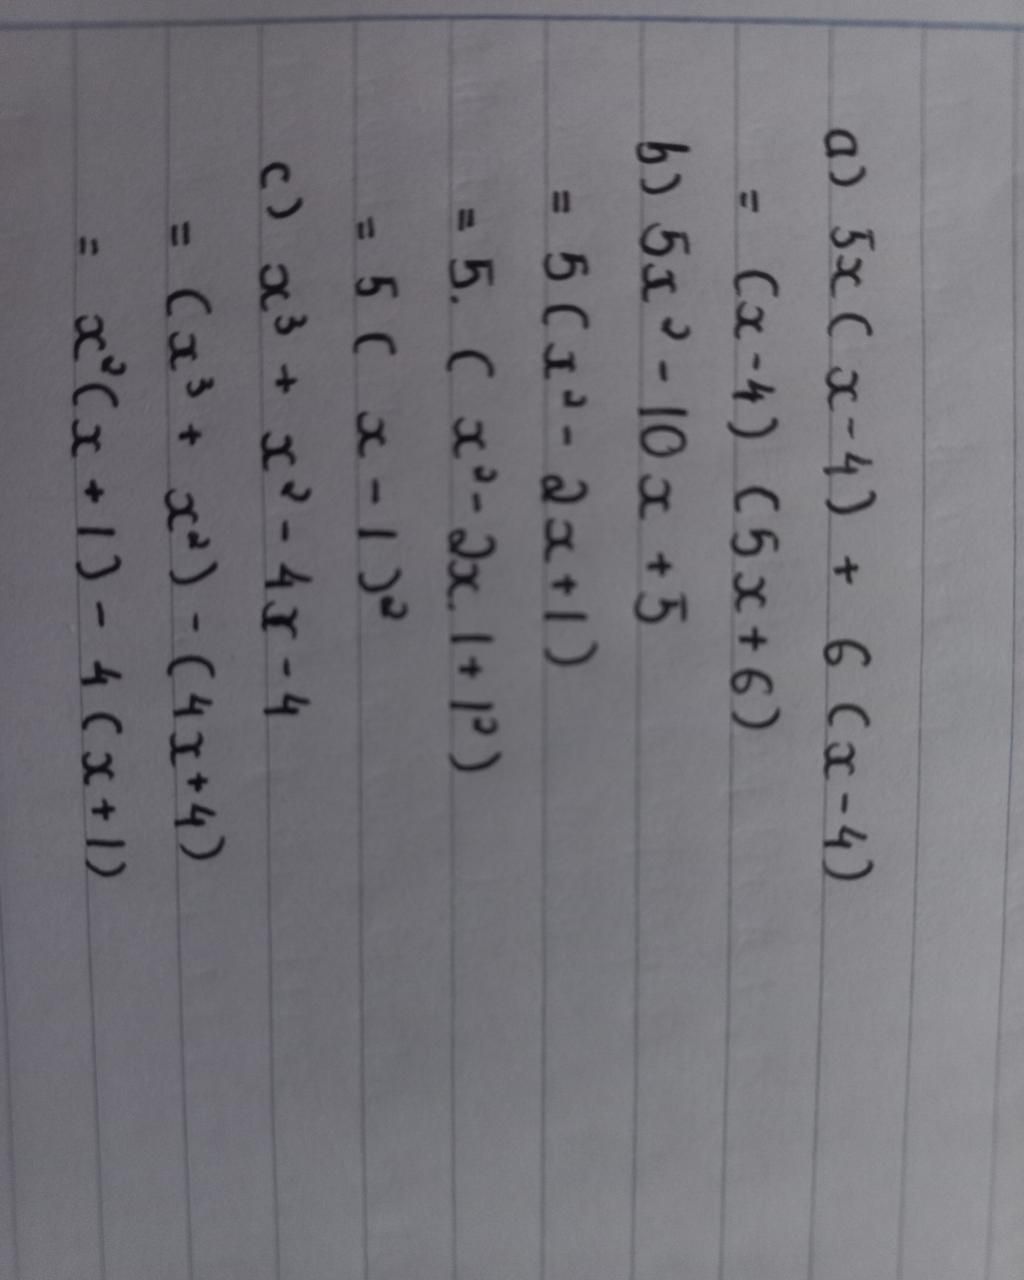 a) 5x(x-4) + 6(x-4)
= (x-4)(5x+6)
b) 5x² - 10x + 5
= 5(x² - 2x + 1)
= 5.(x² - 2x.1 + 1²)
= 5(x - 1)²
c) x³ + x² - 4x - 4
= (x³ + x²) - (4x+4)
= x²(x+1) - 4(x+1)